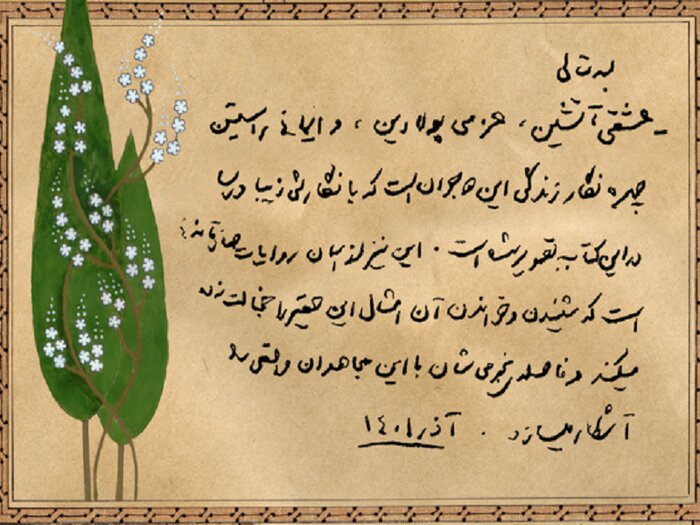 بسمه تعالی
- عشقی آتشین، عزمی پولادین، و ایمانی راستین
چهره نگار زندگی این نوجوان است که با نگارشی زیبا و رسا
در این کتاب به تصویر نشسته است. این نیز از آن روایات
است که شنیدن و خواندن آن امثال این حقیر را خجالت‌زده
میکند و فاصله‌ی نجومی‌شان با این مجاهدان واقعی را
آشکار میسازد. آذر ۱۴۰۱